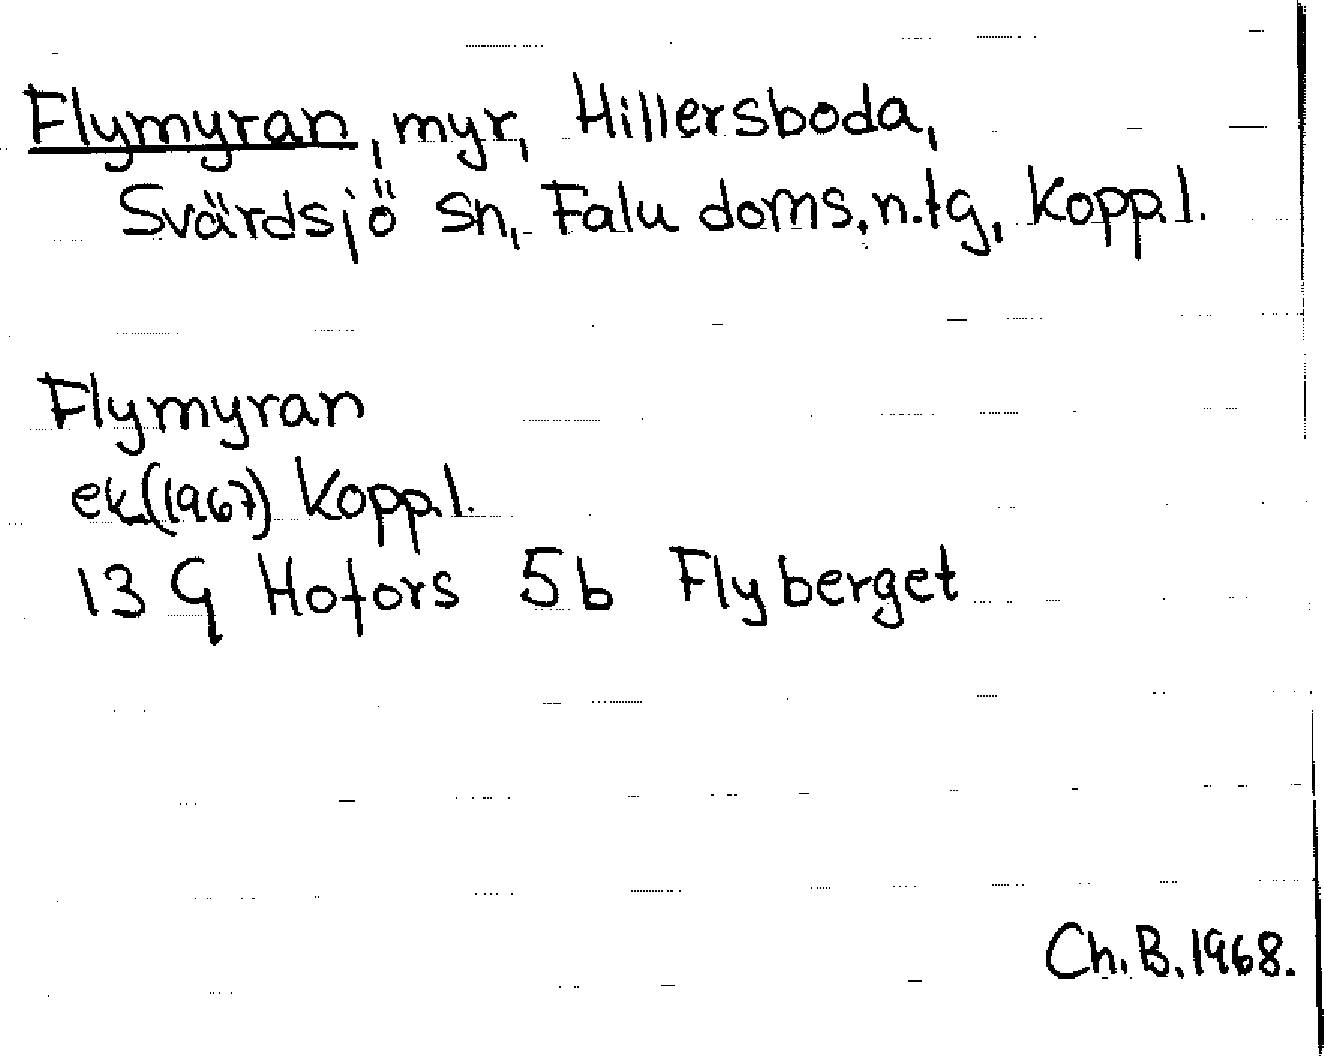 Flymyran, myr, Hillersboda,
Svärdsjö sn, Falu doms. n. tg, Kopp. l.
Flymyran
ek. (1967) Kopp. l.
13 G Hofors 5b Flyberget
Ch. B. 1968.